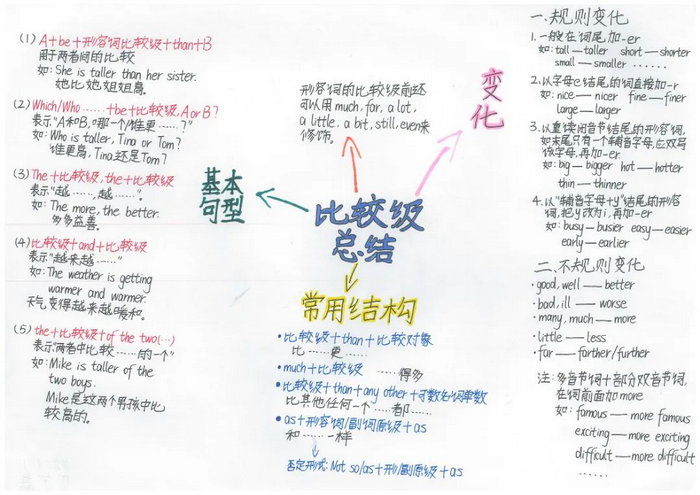 比较级
总结
基本
句型
(1) A+be+形容词比较级+than+B
用于两者间的比较
如: She is taller than her sister.
她比她姐姐高。
(2) Which/Who ……+be+比较级, A or B?
表示"A和B,哪一个/谁更……?"
如: Who is taller, Tina or Tom?
谁更高, Tina还是Tom?
(3) The+比较级, the+比较级
表示"越……,越……"。
如: The more, the better.
多多益善。
(4) 比较级+and+比较级
表示"越来越……"
如: The weather is getting
warmer and warmer.
天气变得越来越暖和。
(5) the+比较级+of the two(…)
表示"两者中比较……的一个"
如: Mike is taller of the
two boys.
Mike是这两个男孩中比
较高的。
形容词的比较级前还
可以用much, far, a lot,
a little, a bit, still, even来
修饰。
常用结构
·比较级+than+比较对象
比……更……
·much+比较级 ……得多
·比较级+than+any other+可数名词单数
比其他任何一个……都……
·as+形容词/副词原级+as
和……一样
否定形式: Not so/as+形/副原级+as
变
化
一、规则变化
1.一般在词尾加-er
如: tall—taller short—shorter
small—smaller ……
2.以字母e结尾的词直接加-r
如: nice—nicer fine—finer
large—larger
3.以重读闭音节结尾的形容词,
如末尾只有一个辅音字母,应双写
该字母,再加-er.
如: big—bigger hot—hotter
thin—thinner
4.以"辅音字母+y"结尾的形容
词,把y改为i,再加-er
如: busy—busier easy—easier
early—earlier
二、不规则变化
·good, well—better
·bad, ill—worse
·many, much—more
·little—less
·far—farther/further
注: 多音节词+部分双音节词,
在词前面加more
如: famous—more famous
exciting—more exciting
difficult—more difficult
……